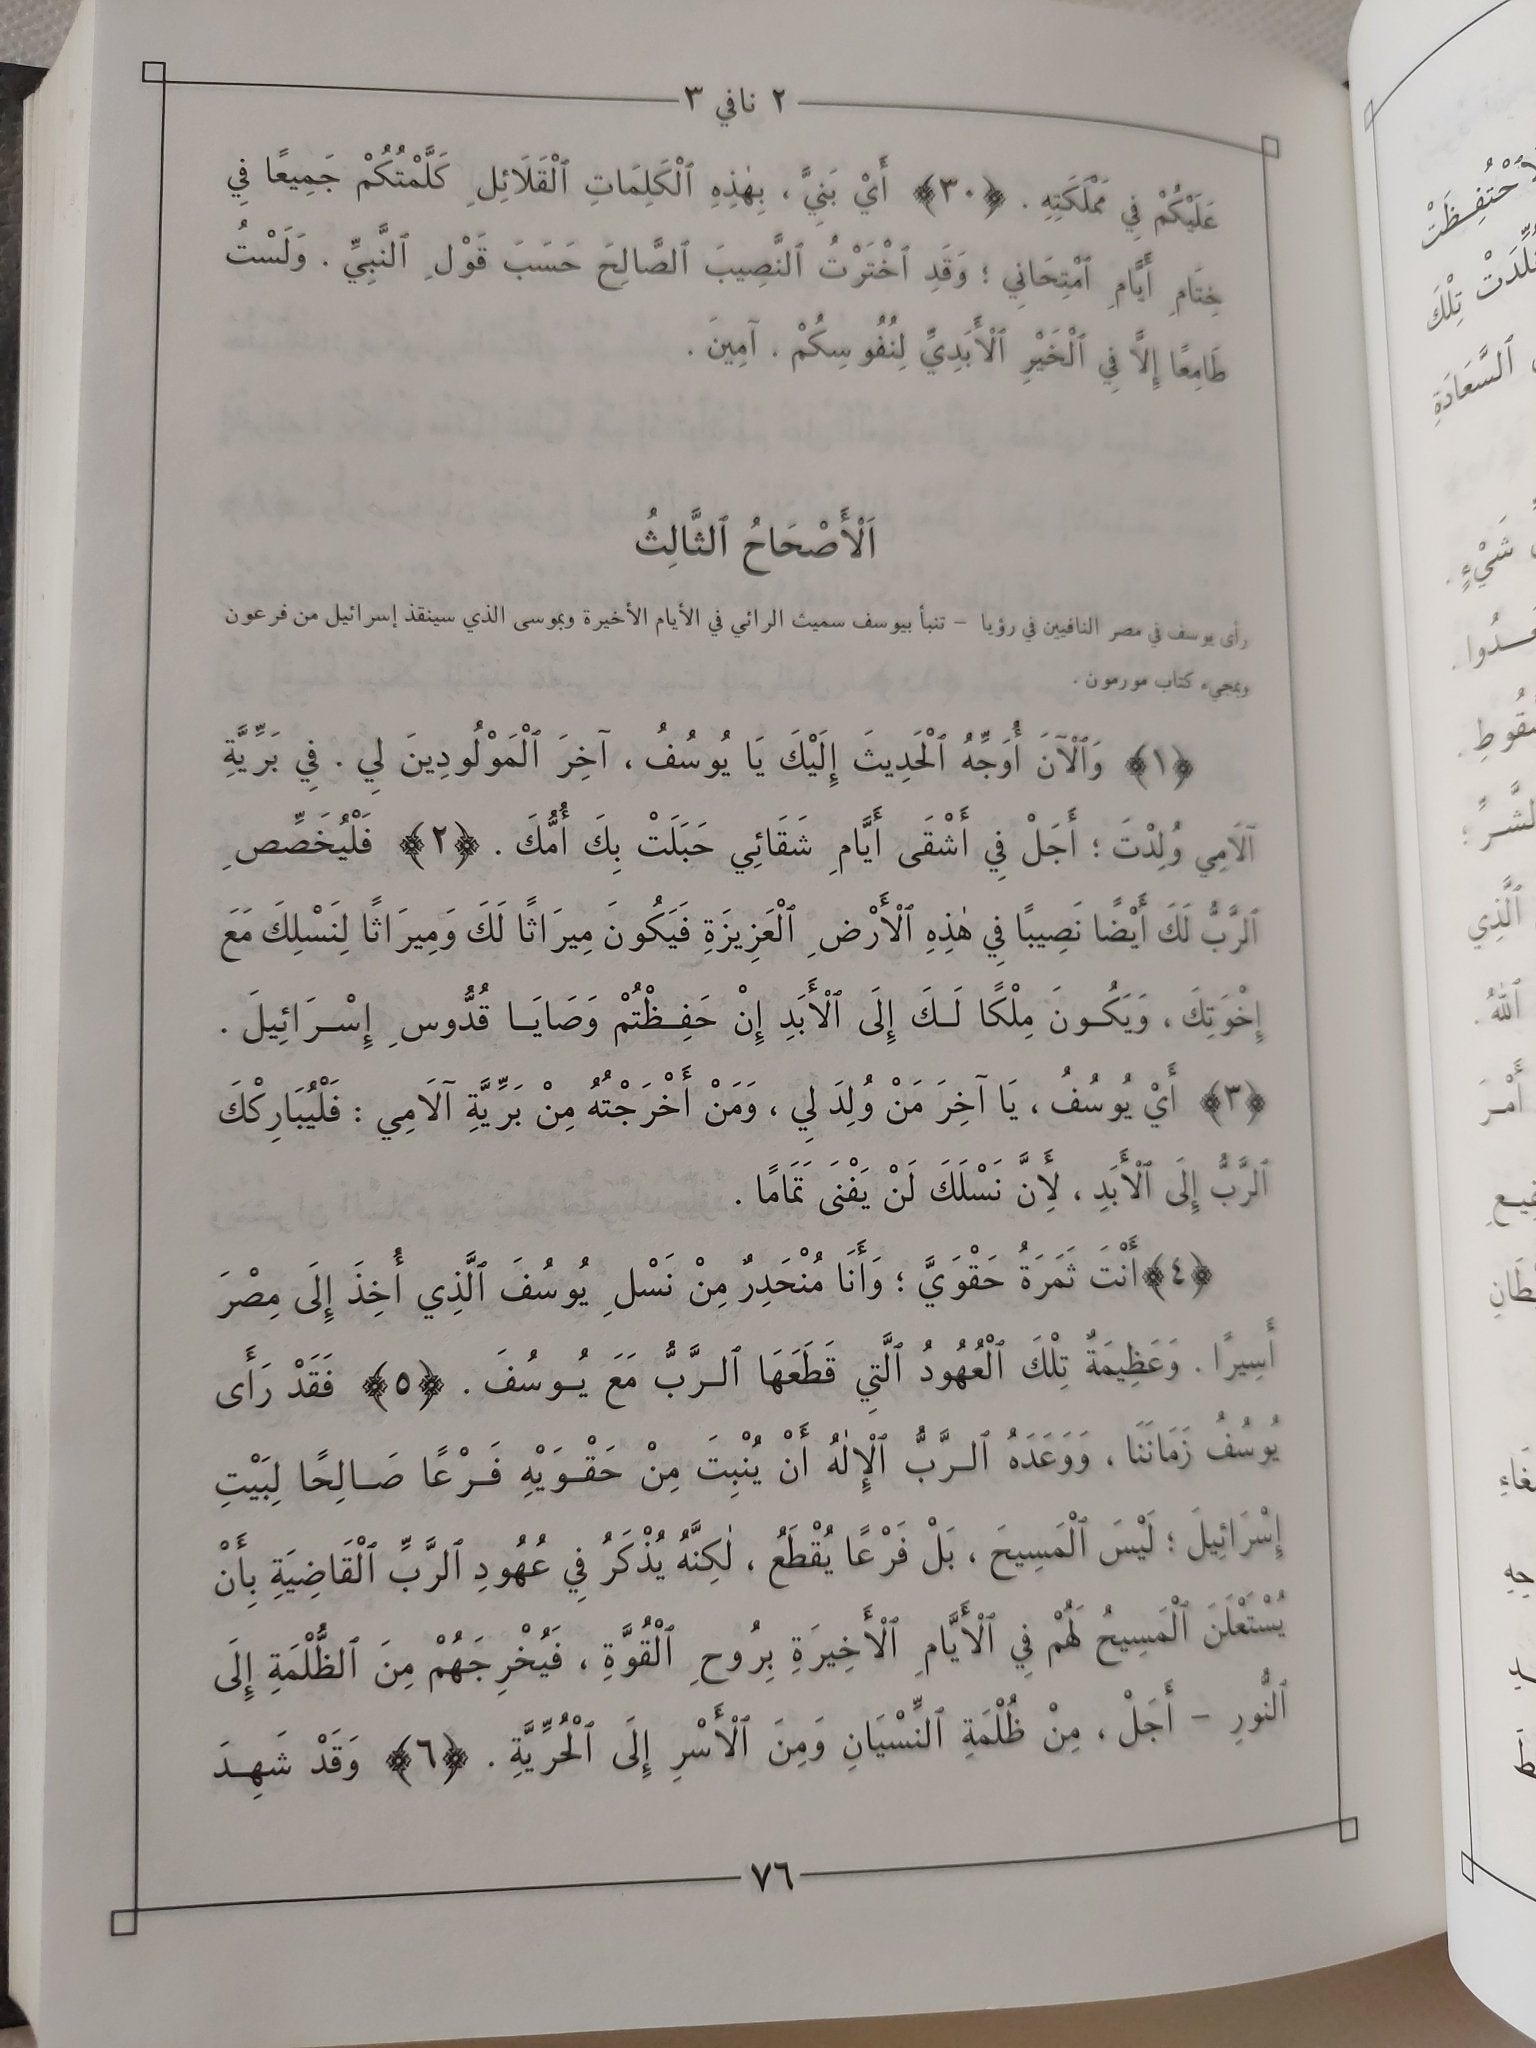 ٢ نافي ٣
عَلَيْكُمْ فِي مَمْلَكَتِهِ . ﴿٣٠﴾ أَيْ بَنِيَّ ، بِهٰذِهِ ٱلْكَلِمَاتِ ٱلْقَلَائِلِ كَلَّمْتُكُمْ جَمِيعًا فِي
خِتَامِ أَيَّامِ ٱمْتِحَانِي ؛ وَقَدِ ٱخْتَرْتُ ٱلنَّصِيبَ ٱلصَّالِحَ حَسَبَ قَوْلِ ٱلنَّبِيِّ . وَلَسْتُ
طَامِعًا إِلَّا فِي ٱلْخَيْرِ ٱلْأَبَدِيِّ لِنُفُوسِكُمْ . آمِينَ .
اَلْأَصْحَاحُ ٱلثَّالِثُ
رأى يوسف في مصر النافيين في رؤيا – تنبأ بيوسف سميث الرائي في الأيام الأخيرة وبموسى الذي سينقذ إسرائيل من فرعون
وبمجيء كتاب مورمون .
﴿١﴾ وَٱلْآنَ أُوَجِّهُ ٱلْحَدِيثَ إِلَيْكَ يَا يُوسُفُ ، آخِرَ ٱلْمَوْلُودِينَ لِي . فِي بَرِّيَّةِ
آلَامِي وُلِدْتَ ؛ أَجَلْ فِي أَشْقَى أَيَّامِ شَقَائِي حَبَلَتْ بِكَ أُمُّكَ . ﴿٢﴾ فَلْيُخَصِّصِ
ٱلرَّبُّ لَكَ أَيْضًا نَصِيبًا فِي هٰذِهِ ٱلْأَرْضِ ٱلْعَزِيزَةِ فَيَكُونَ مِيرَاثًا لَكَ وَمِيرَاثًا لِنَسْلِكَ مَعَ
إِخْوَتِكَ ، وَيَكُونَ مِلْكًا لَكَ إِلَى ٱلْأَبَدِ إِنْ حَفِظْتُمْ وَصَايَا قُدُّوسِ إِسْرَائِيلَ .
﴿٣﴾ أَيْ يُوسُفُ ، يَا آخِرَ مَنْ وُلِدَ لِي ، وَمَنْ أَخْرَجْتُهُ مِنْ بَرِّيَّةِ آلَامِي : فَلْيُبَارِكْكَ
ٱلرَّبُّ إِلَى ٱلْأَبَدِ ، لِأَنَّ نَسْلَكَ لَنْ يَفْنَى تَمَامًا .
﴿٤﴾ أَنْتَ ثَمَرَةُ حَقْوَيَّ ؛ وَأَنَا مُنْحَدِرٌ مِنْ نَسْلِ يُوسُفَ ٱلَّذِي أُخِذَ إِلَى مِصْرَ
أَسِيرًا . وَعَظِيمَةٌ تِلْكَ ٱلْعُهُودُ ٱلَّتِي قَطَعَهَا ٱلرَّبُّ مَعَ يُوسُفَ . ﴿٥﴾ فَقَدْ رَأَى
يُوسُفُ زَمَانَنَا ، وَوَعَدَهُ ٱلرَّبُّ ٱلْإِلٰهُ أَنْ يُنْبِتَ مِنْ حَقْوَيْهِ فَرْعًا صَالِحًا لِبَيْتِ
إِسْرَائِيلَ ؛ لَيْسَ ٱلْمَسِيحَ ، بَلْ فَرْعًا يُقْطَعُ ، لٰكِنَّهُ يُذْكَرُ فِي عُهُودِ ٱلرَّبِّ ٱلْقَاضِيَةِ بِأَنْ
يُسْتَعْلَنَ ٱلْمَسِيحُ لَهُمْ فِي ٱلْأَيَّامِ ٱلْأَخِيرَةِ بِرُوحِ ٱلْقُوَّةِ ، فَيُخْرِجَهُمْ مِنَ ٱلظُّلْمَةِ إِلَى
ٱلنُّورِ – أَجَلْ ، مِنْ ظُلْمَةِ ٱلنِّسْيَانِ وَمِنَ ٱلْأَسْرِ إِلَى ٱلْحُرِّيَّةِ . ﴿٦﴾ وَقَدْ شَهِدَ
٧٦
تِلْكَ
ٱلسَّعَادَةِ
شَيْءٍ .
ٱلَّذِي
ٱللهُ .